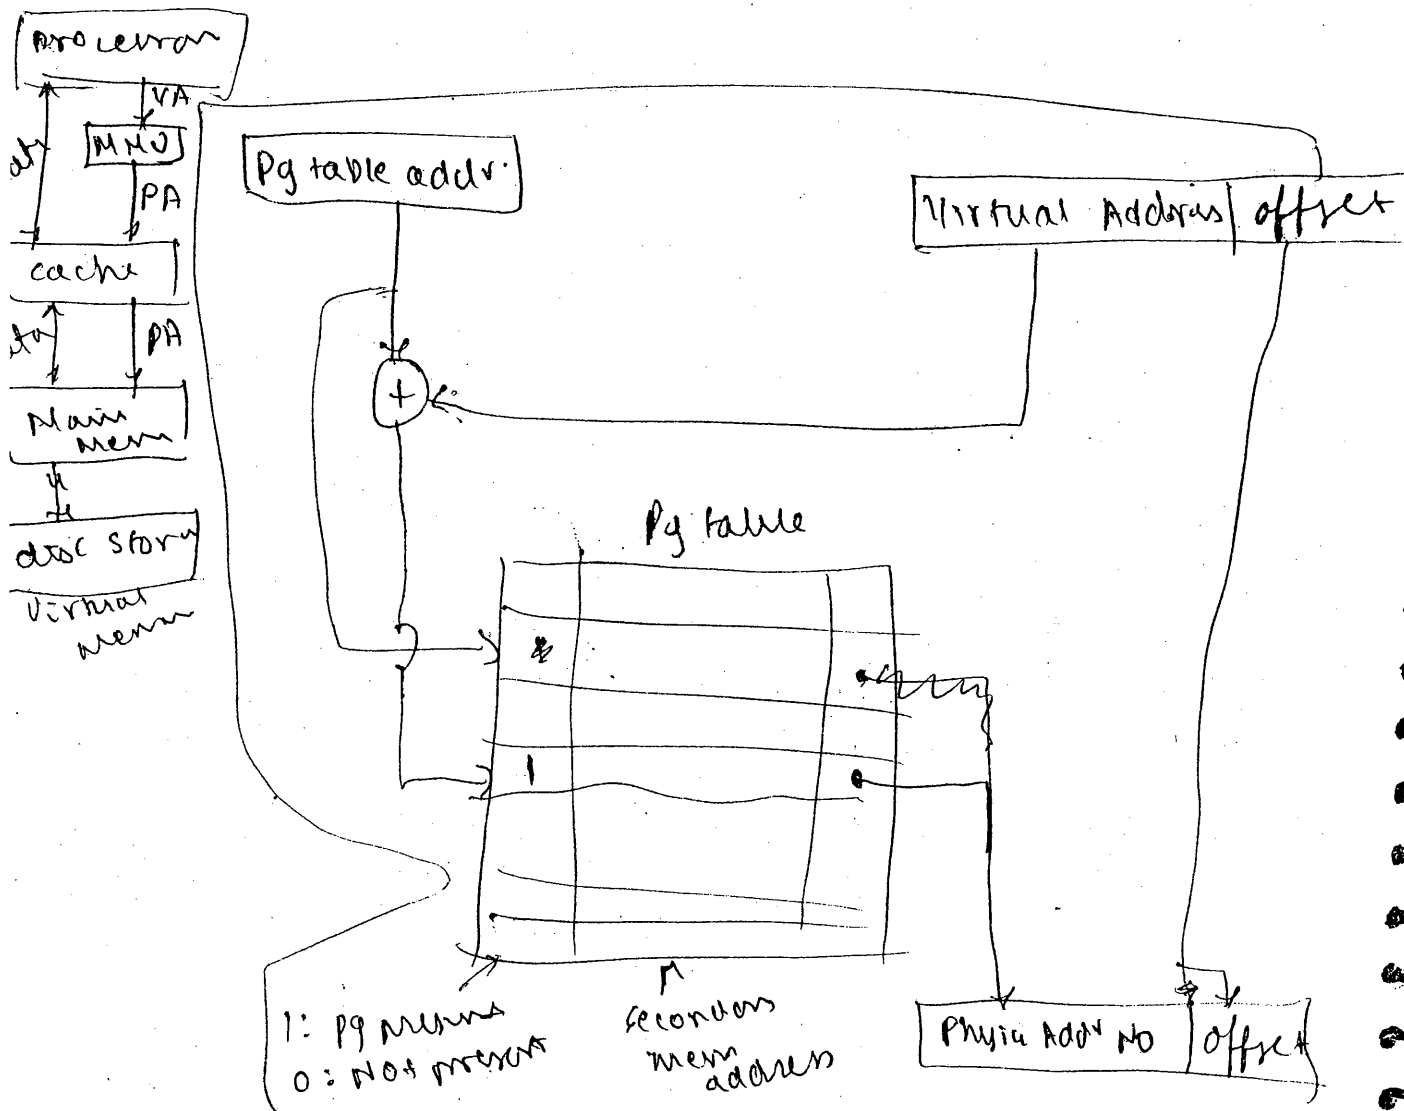 Processor
VA
MMU
PA
cache
PA
Main
Mem
disc Stor
Virtual
Mem
Pg table addr.
Virtual Address | offset
+
Pg table
1
1: Pg present
0: Not present
secondary
mem
address
Physic Addr No | offset